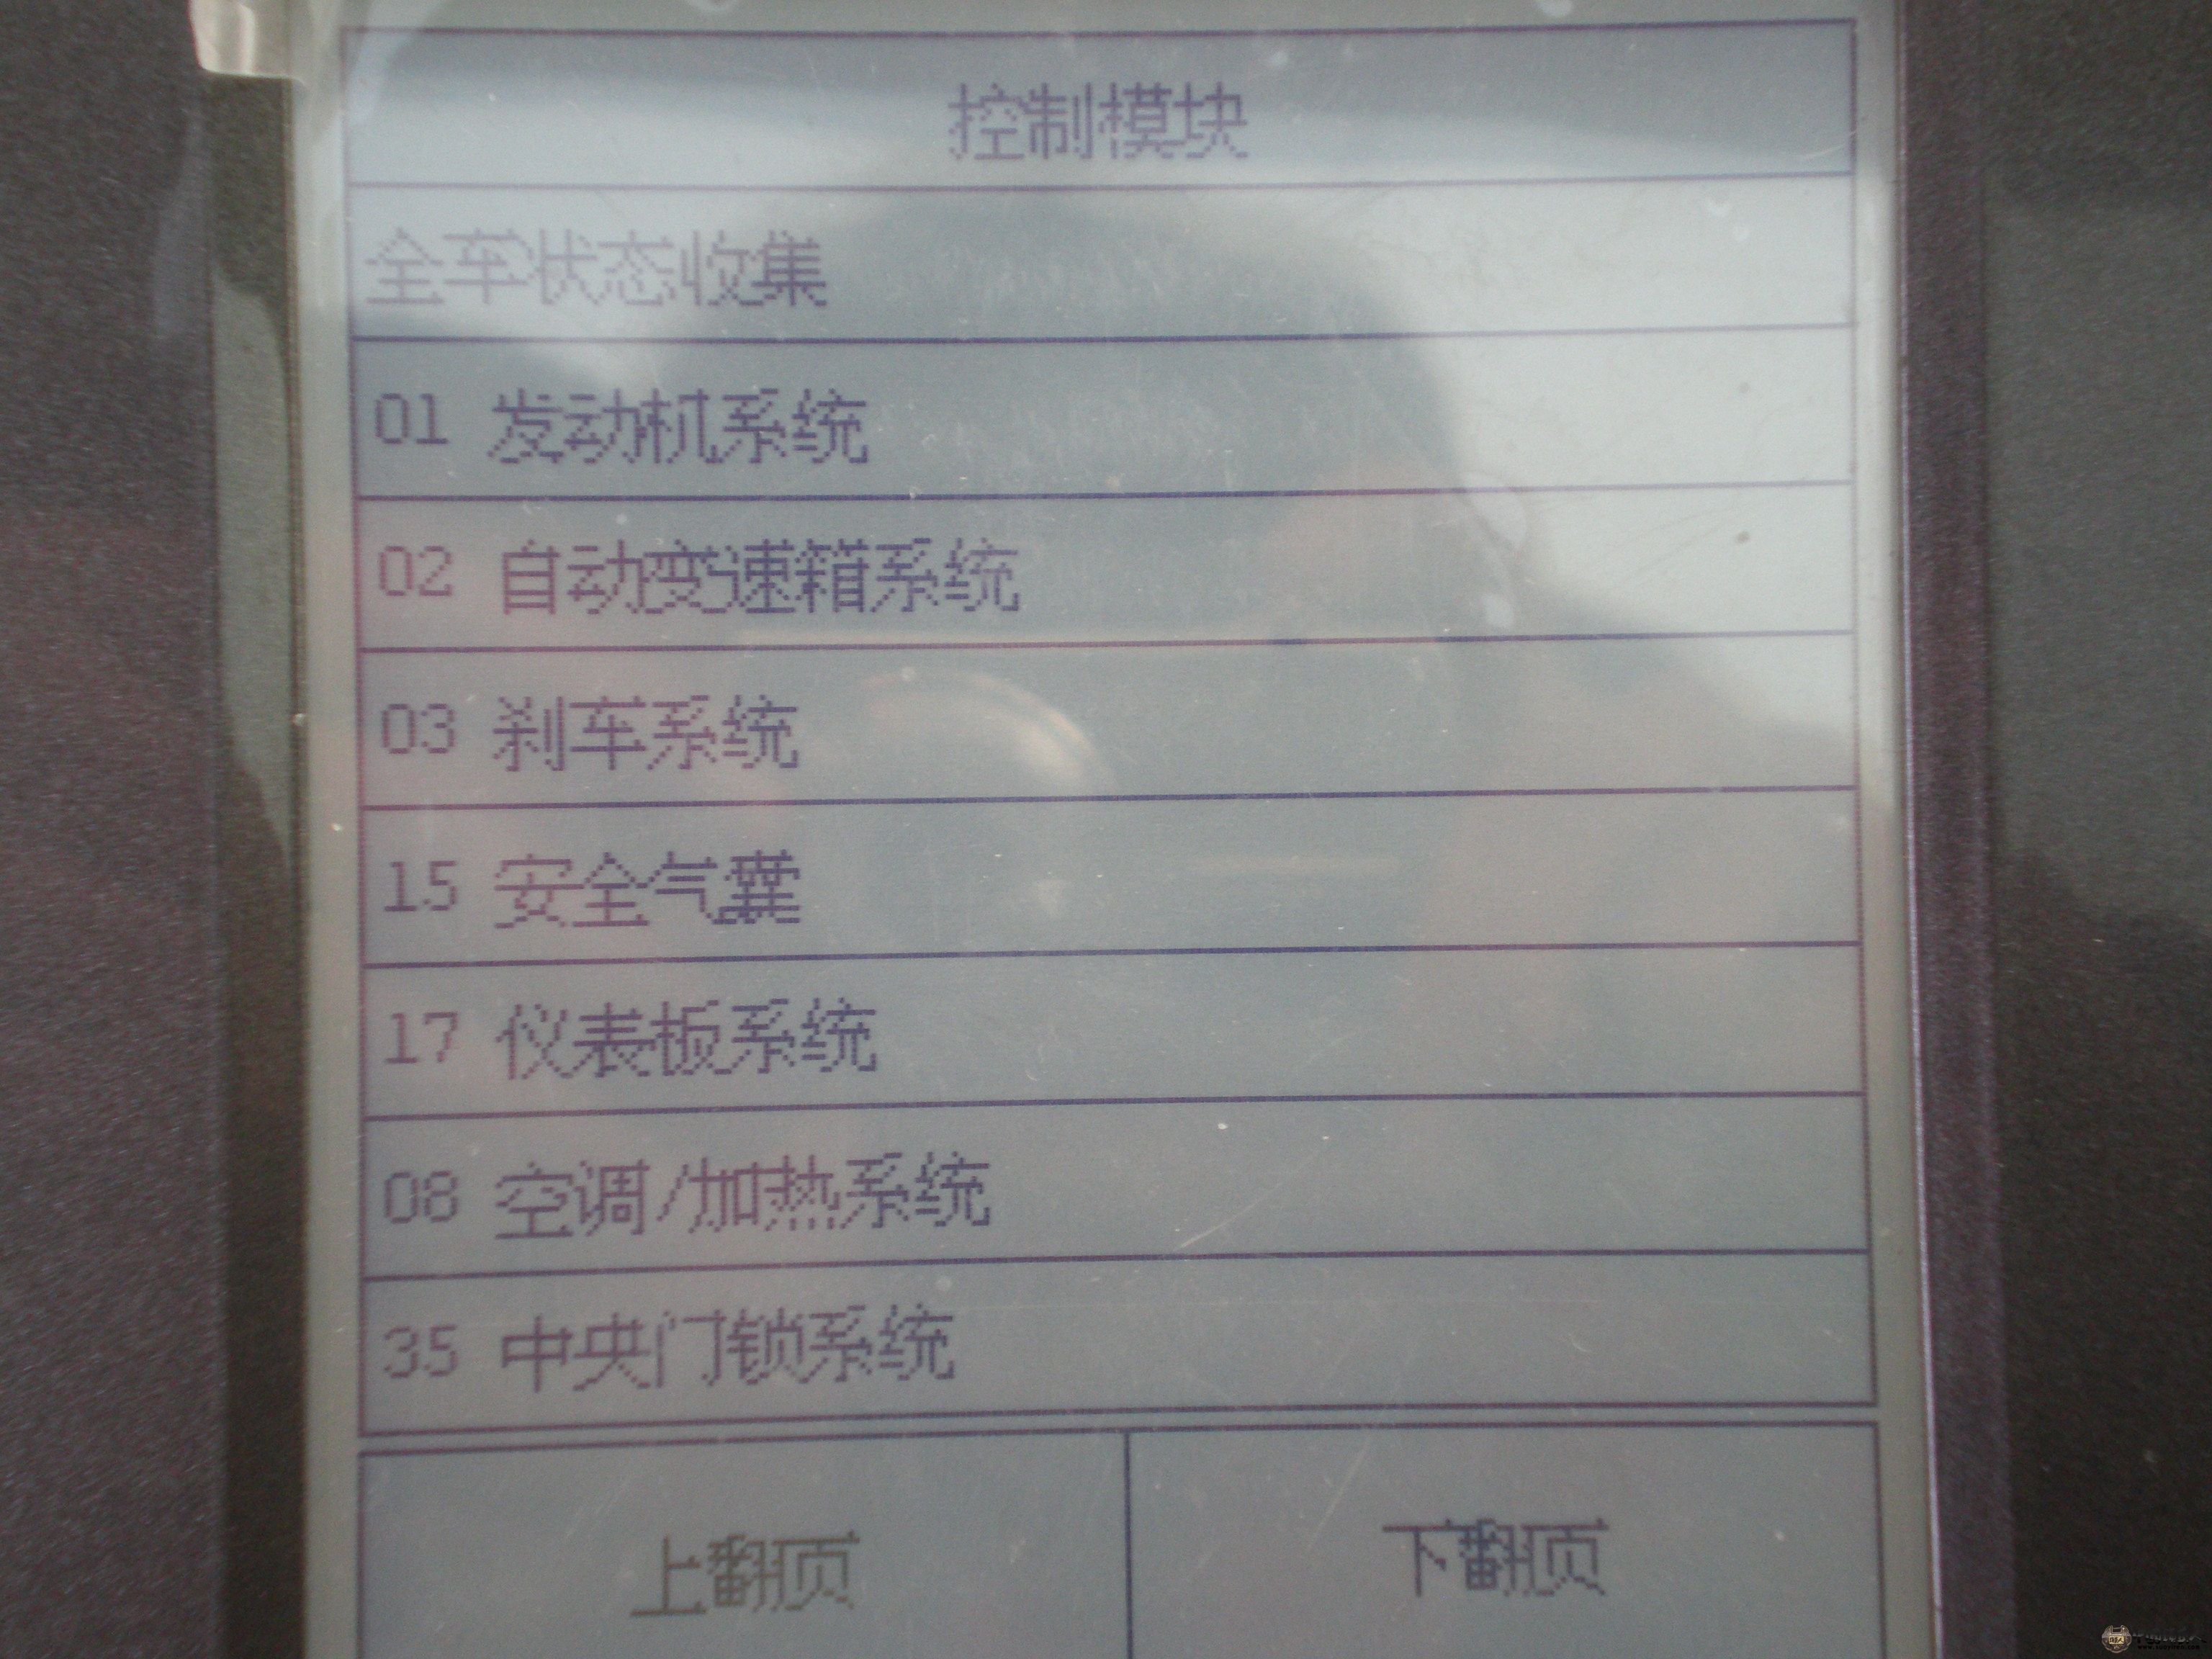 控制模块
全车状态收集
01 发动机系统
02 自动变速箱系统
03 刹车系统
15 安全气囊
17 仪表板系统
08 空调/加热系统
35 中央门锁系统
上翻页
下翻页